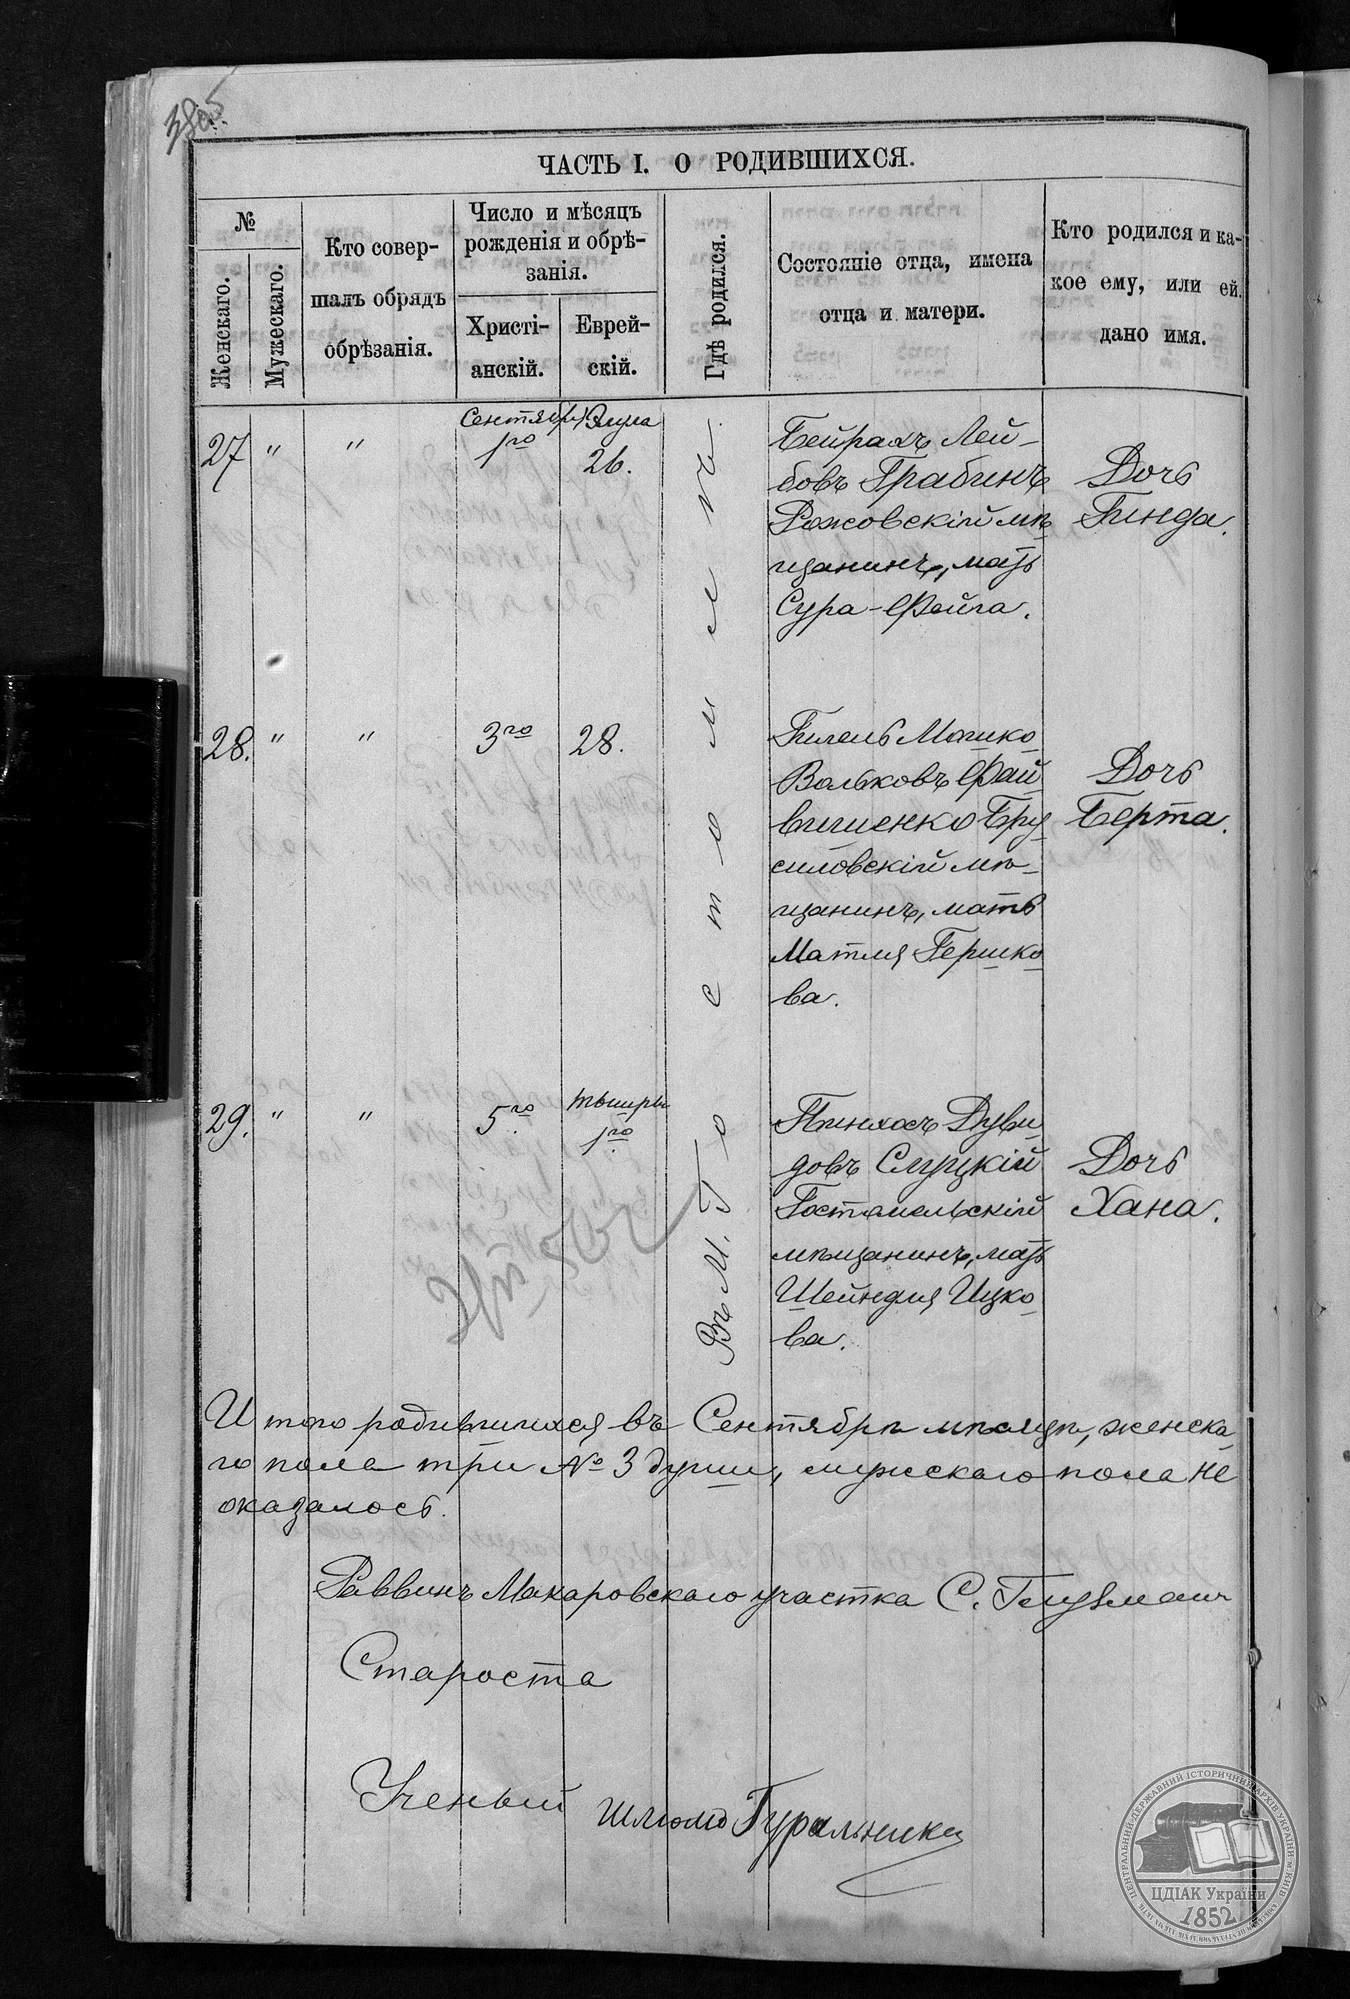 ЧАСТЬ I. О РОДИВШИХСЯ.
№
Женскаго.
Мужескаго.
Кто совер-
шалъ обрядъ
обрѣзанія.
Число и мѣсяцъ
рожденія и обрѣ-
занія.
Христі-
анскій.
Еврей-
скій.
Гдѣ родился.
Состояніе отца, имена
отца и матери.
Кто родился и ка-
кое ему, или ей.
дано имя.
Въ М. Гостомлмъ.
27 " " Сентября 1го Элула 26.
Бейрахъ Лей-
бовъ Грабинъ
Рожовскій мѣ
щанинъ, мать
Сура-Фейга.
Дочь
Гинда.
28. " " 3го 28.
Гилель Мошко
Вольковъ Фай
вишенко Бру
силовскій мѣ-
щанинъ, мать
Матля Гершко
ва.
Дочь
Берта.
29. " " 5го Тышры 1го
Пинхасъ Дуви
довъ Слуцкій
Гостомельскій
мѣщанинъ, мать
Шейндля Ицко
ва.
Дочь
Хана.
Итого родившихся въ Сентябрѣ мѣсяцѣ, женска
го пола три № 3 души, мужскаго пола не
оказалось.
Раввинъ Макаровскаго участка С. Глузманъ
Староста
Ученый Шлюмо Гуральникъ
ЦЕНТРАЛЬНИЙ ДЕРЖАВНИЙ ІСТОРИЧНИЙ АРХІВ УКРАЇНИ М. КИЇВ
ЦДІАК України
1852